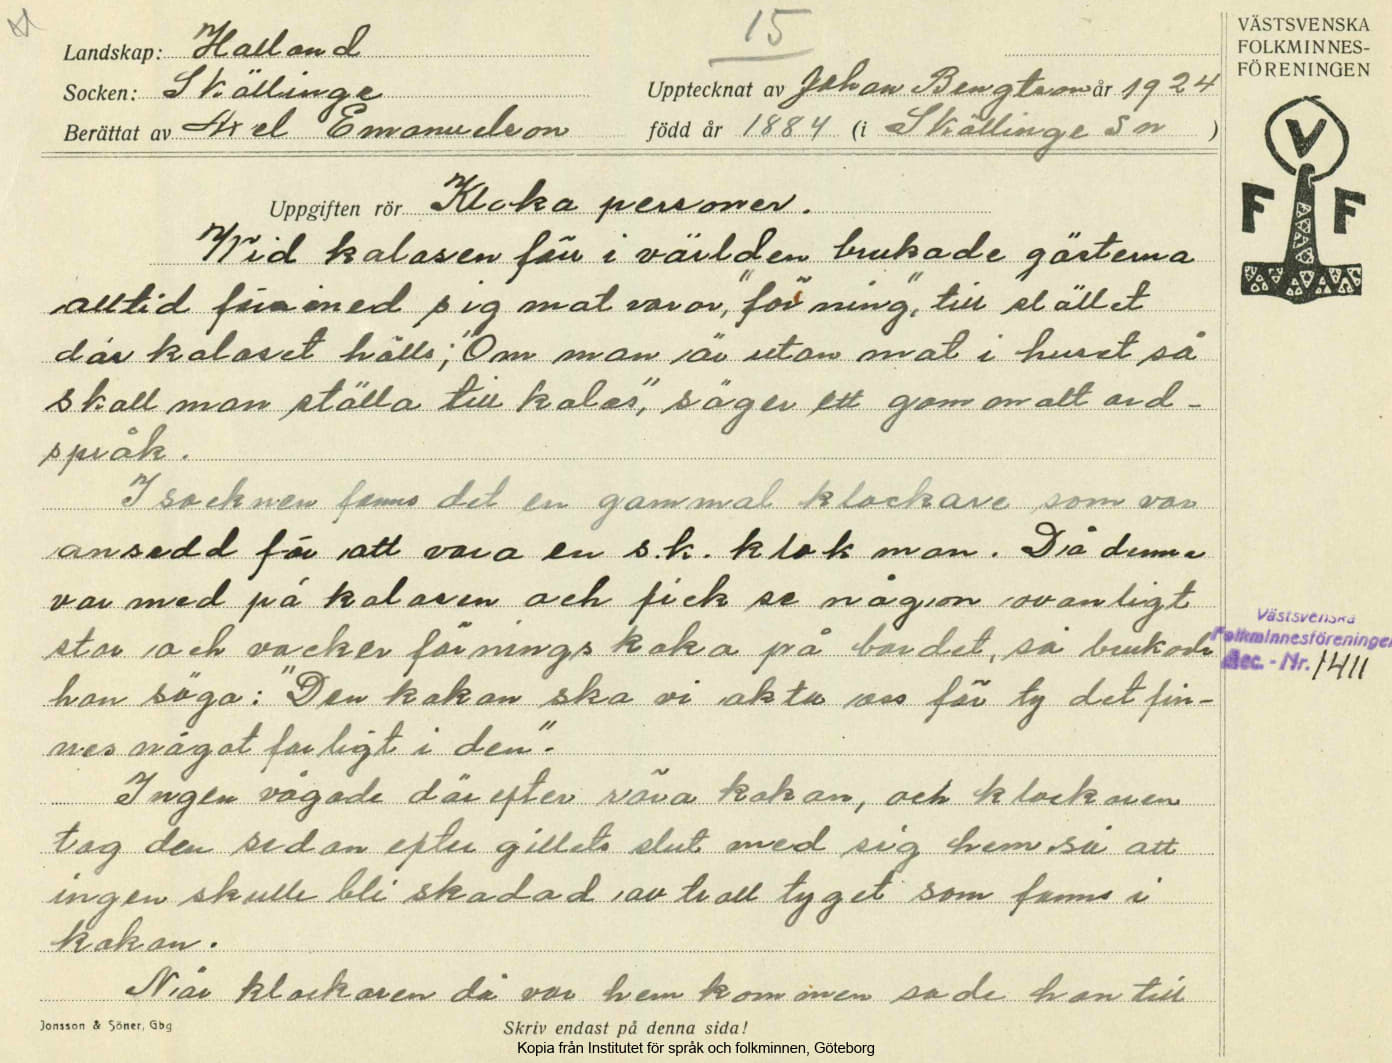 15
Landskap: Halland
Socken: Skällinge
Berättat av Axel Emanuelsson
Upptecknat av Johan Bengtsson år 1924
född år 1884 (i Skällinge Sn )
VÄSTSVENSKA
FOLKMINNES-
FÖRENINGEN
V
F F
Uppgiften rör Kloka personer.
Wid kalasen förr i världen brukade gästerna
alltid föra med sig mat varor, "förning", till stället
där kalaset hölls; "Om man är utan mat i huset så
skall man ställa till kalas", säger ett gammalt ord-
språk.
I socknen fanns det en gammal klockare som var
ansedd för att vara en s.k. klok man. Då denne
var med på kalasen och fick se någon ovanligt
stor och vacker förnings kaka på bordet, så brukade
han säga: "Den kakan ska vi akta oss för ty det fin-
nes något farligt i den".
Ingen vågade därefter röra kakan, och klockaren
tog den sedan efter gillets slut med sig hem så att
ingen skulle bli skadad av troll tyget som fanns i
kakan.
När klockaren då var hem kommen sade han till
Västsvenska
Folkminnesföreningen
Acc. - Nr. 1411
Jonsson & Söner, Gbg
Skriv endast på denna sida!
Kopia från Institutet för språk och folkminnen, Göteborg